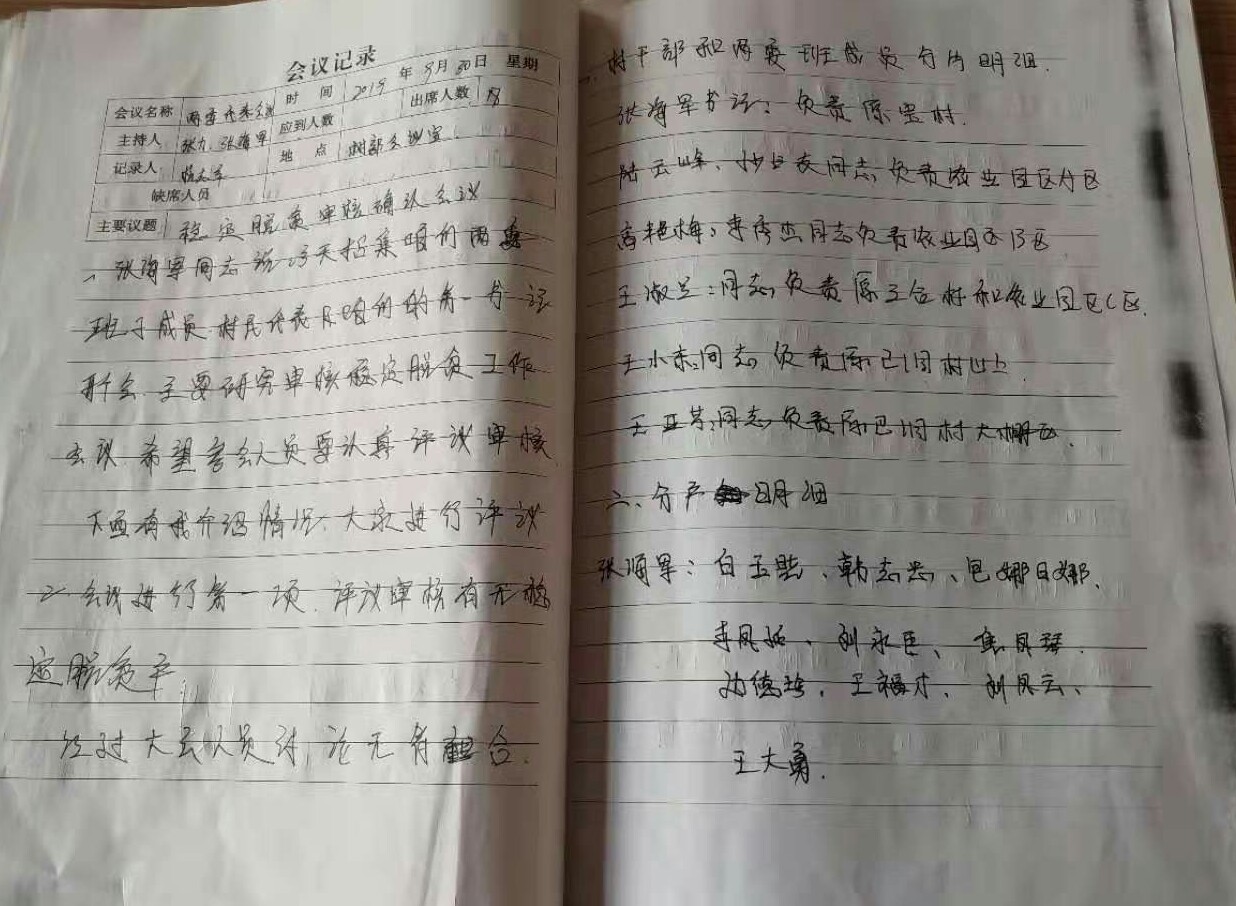 会议记录
会议名称 两委代表会议 时间 2019年9月30日 星期
主持人 张力、张海军 应到人数 出席人数 18
记录人 地点 村部会议室
缺席人员
主要议题 稳定脱贫审核确认会议
、张海军同志说:今天招集咱们两委
班子成员 村民代表和咱们的第一书记
开会 主要研究审核稳定脱贫工作
会议 希望参会人员要认真评议审核
下面有我介绍情况、大家进行评议
二 会议进行第一项、评议审核有无稳
定脱贫户.
经过大会人员讨论无有
一、村干部和两委班成员分片明细.
张海军书记:负责原宝村.
陆云峰、同志负责农业园区A区
高艳梅:李秀杰同志负责农业园区B区
王淑兰:同志负责原三合村和农业园区C区.
王小东:同志负责原巴润村
王亚芳:同志负责原巴润村大棚区.
二、分户明细
张海军:白玉、韩志忠、包娜日娜、
李凤、刘永臣、焦凤琴.
孙德、王福才、刘凤云、
王大勇.